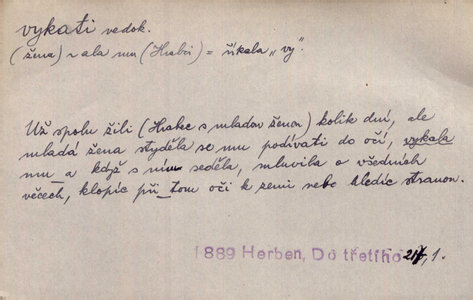 vykati vedok.
(žena) ~ ala mu (Hrabci) = říkala „vy".
Už spolu žili (Hrabec s mladou ženou) kolik dní, ale
mladá žena styděla se mu podívati do očí, vykala
mu a když s ním seděla, mluvila o všedních
věcech, klopíc při tom oči k zemi nebo hledíc stranou.
1889 Herben, Do třetího 21, 1.